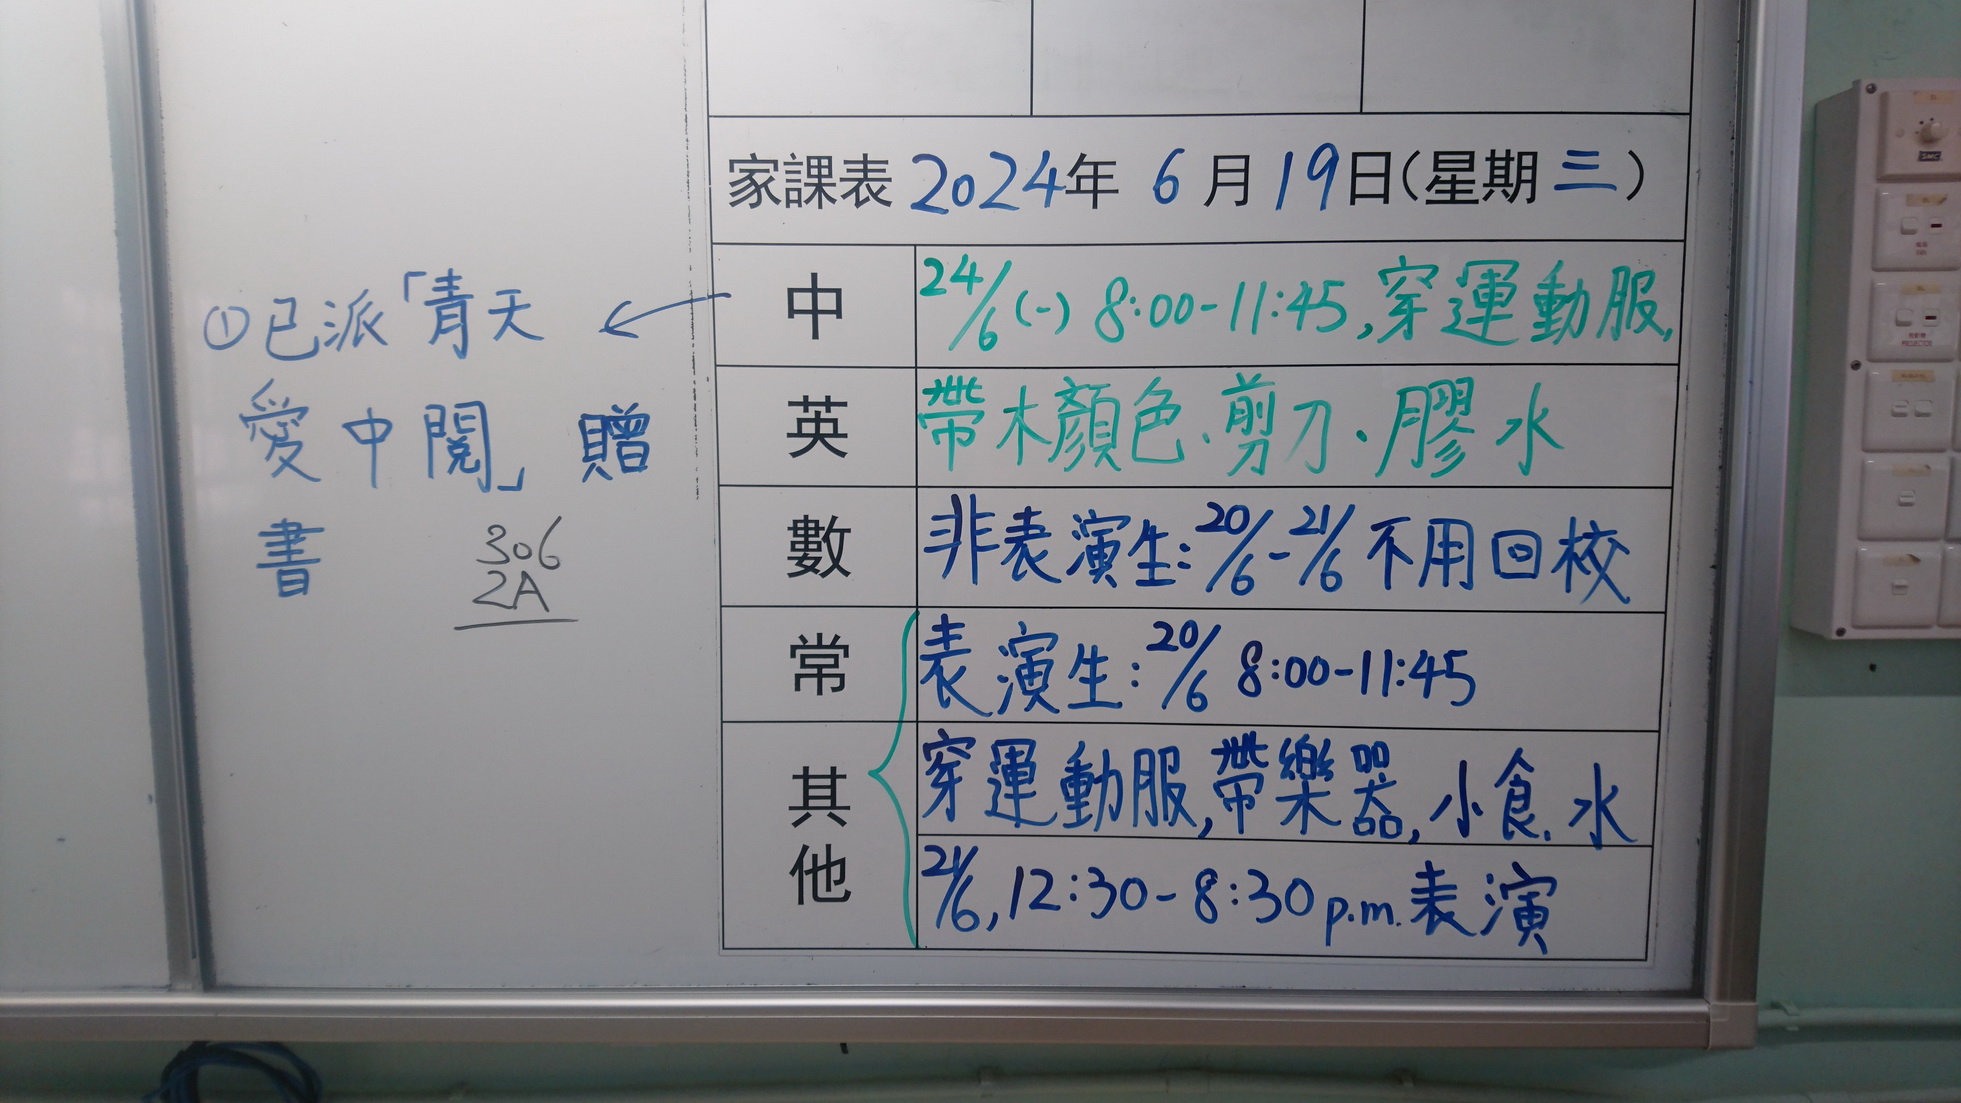 家課表 2024年 6月19日(星期三)
中 24/6(一) 8:00-11:45,穿運動服,
英 帶木顏色、剪刀、膠水
數 非表演生:20/6-21/6不用回校
常 表演生:20/6 8:00-11:45
其他 穿運動服,帶樂器,小食、水
21/6,12:30-8:30p.m.表演
①已派「青天
愛中閱」贈
書
306
2A
SMC
PROJECTOR